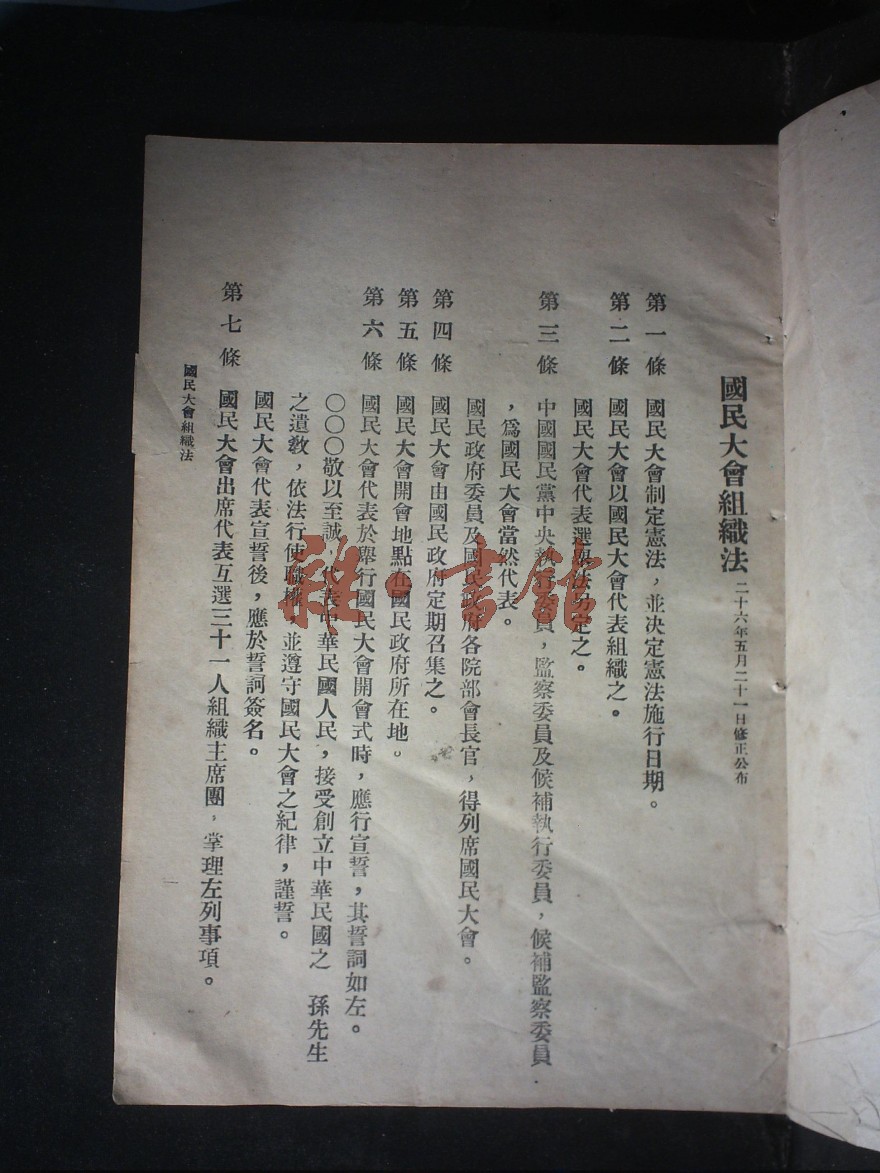 國民大會組織法 二十六年五月二十一日修正公布
第一條 國民大會制定憲法，並決定憲法施行日期。
第二條 國民大會以國民大會代表組織之。
國民大會代表選舉法另定之。
第三條 中國國民黨中央執行委員，監察委員及候補執行委員，候補監察委員
，爲國民大會當然代表。
國民政府委員及國民政府各院部會長官，得列席國民大會。
第四條 國民大會由國民政府定期召集之。
第五條 國民大會開會地點在國民政府所在地。
第六條 國民大會代表於舉行國民大會開會式時，應行宣誓，其誓詞如左。
〇〇〇敬以至誠，代表中華民國人民，接受創立中華民國之 孫先生
之遺教，依法行使職權，並遵守國民大會之紀律，謹誓。
國民大會代表宣誓後，應於誓詞簽名。
第七條 國民大會出席代表互選三十一人組織主席團，掌理左列事項。
國民大會組織法
一
雜·書館